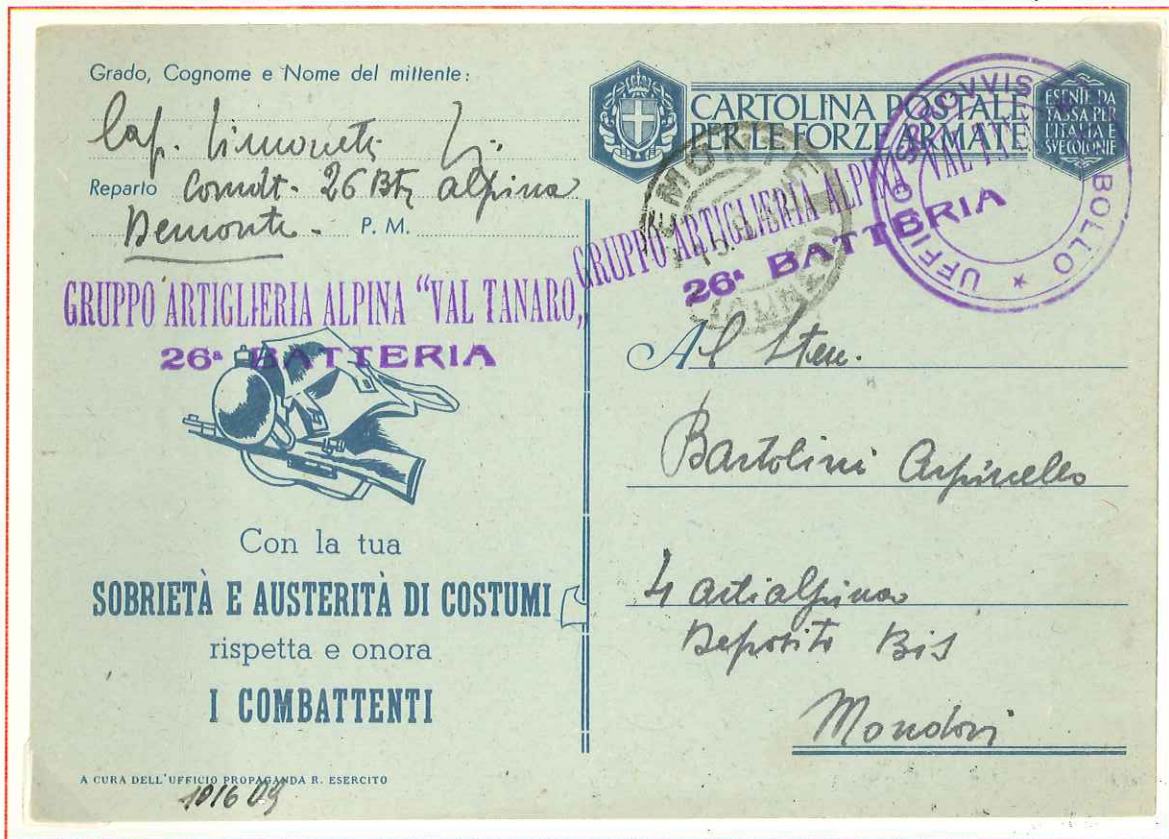 Grado, Cognome e Nome del mittente:
Cap.
Reparto Comdt. 26 Btr alpina
Demonte - P. M.
GRUPPO ARTIGLIERIA ALPINA "VAL TANARO„
26ª BATTERIA
Con la tua
SOBRIETÀ E AUSTERITÀ DI COSTUMI
rispetta e onora
I COMBATTENTI
A CURA DELL'UFFICIO PROPAGANDA R. ESERCITO
CARTOLINA POSTALE
PER LE FORZE ARMATE
ESENTE DA
TASSA PER
L'ITALIA E
SUE COLONIE
UFFICIO SPROVVIS BOLLO
GRUPPO ARTIGLIERIA ALPINA "VAL
26ª BATTERIA
Al Sten.
Bartolini
4 artialpina
Deposito Bis
Mondovì